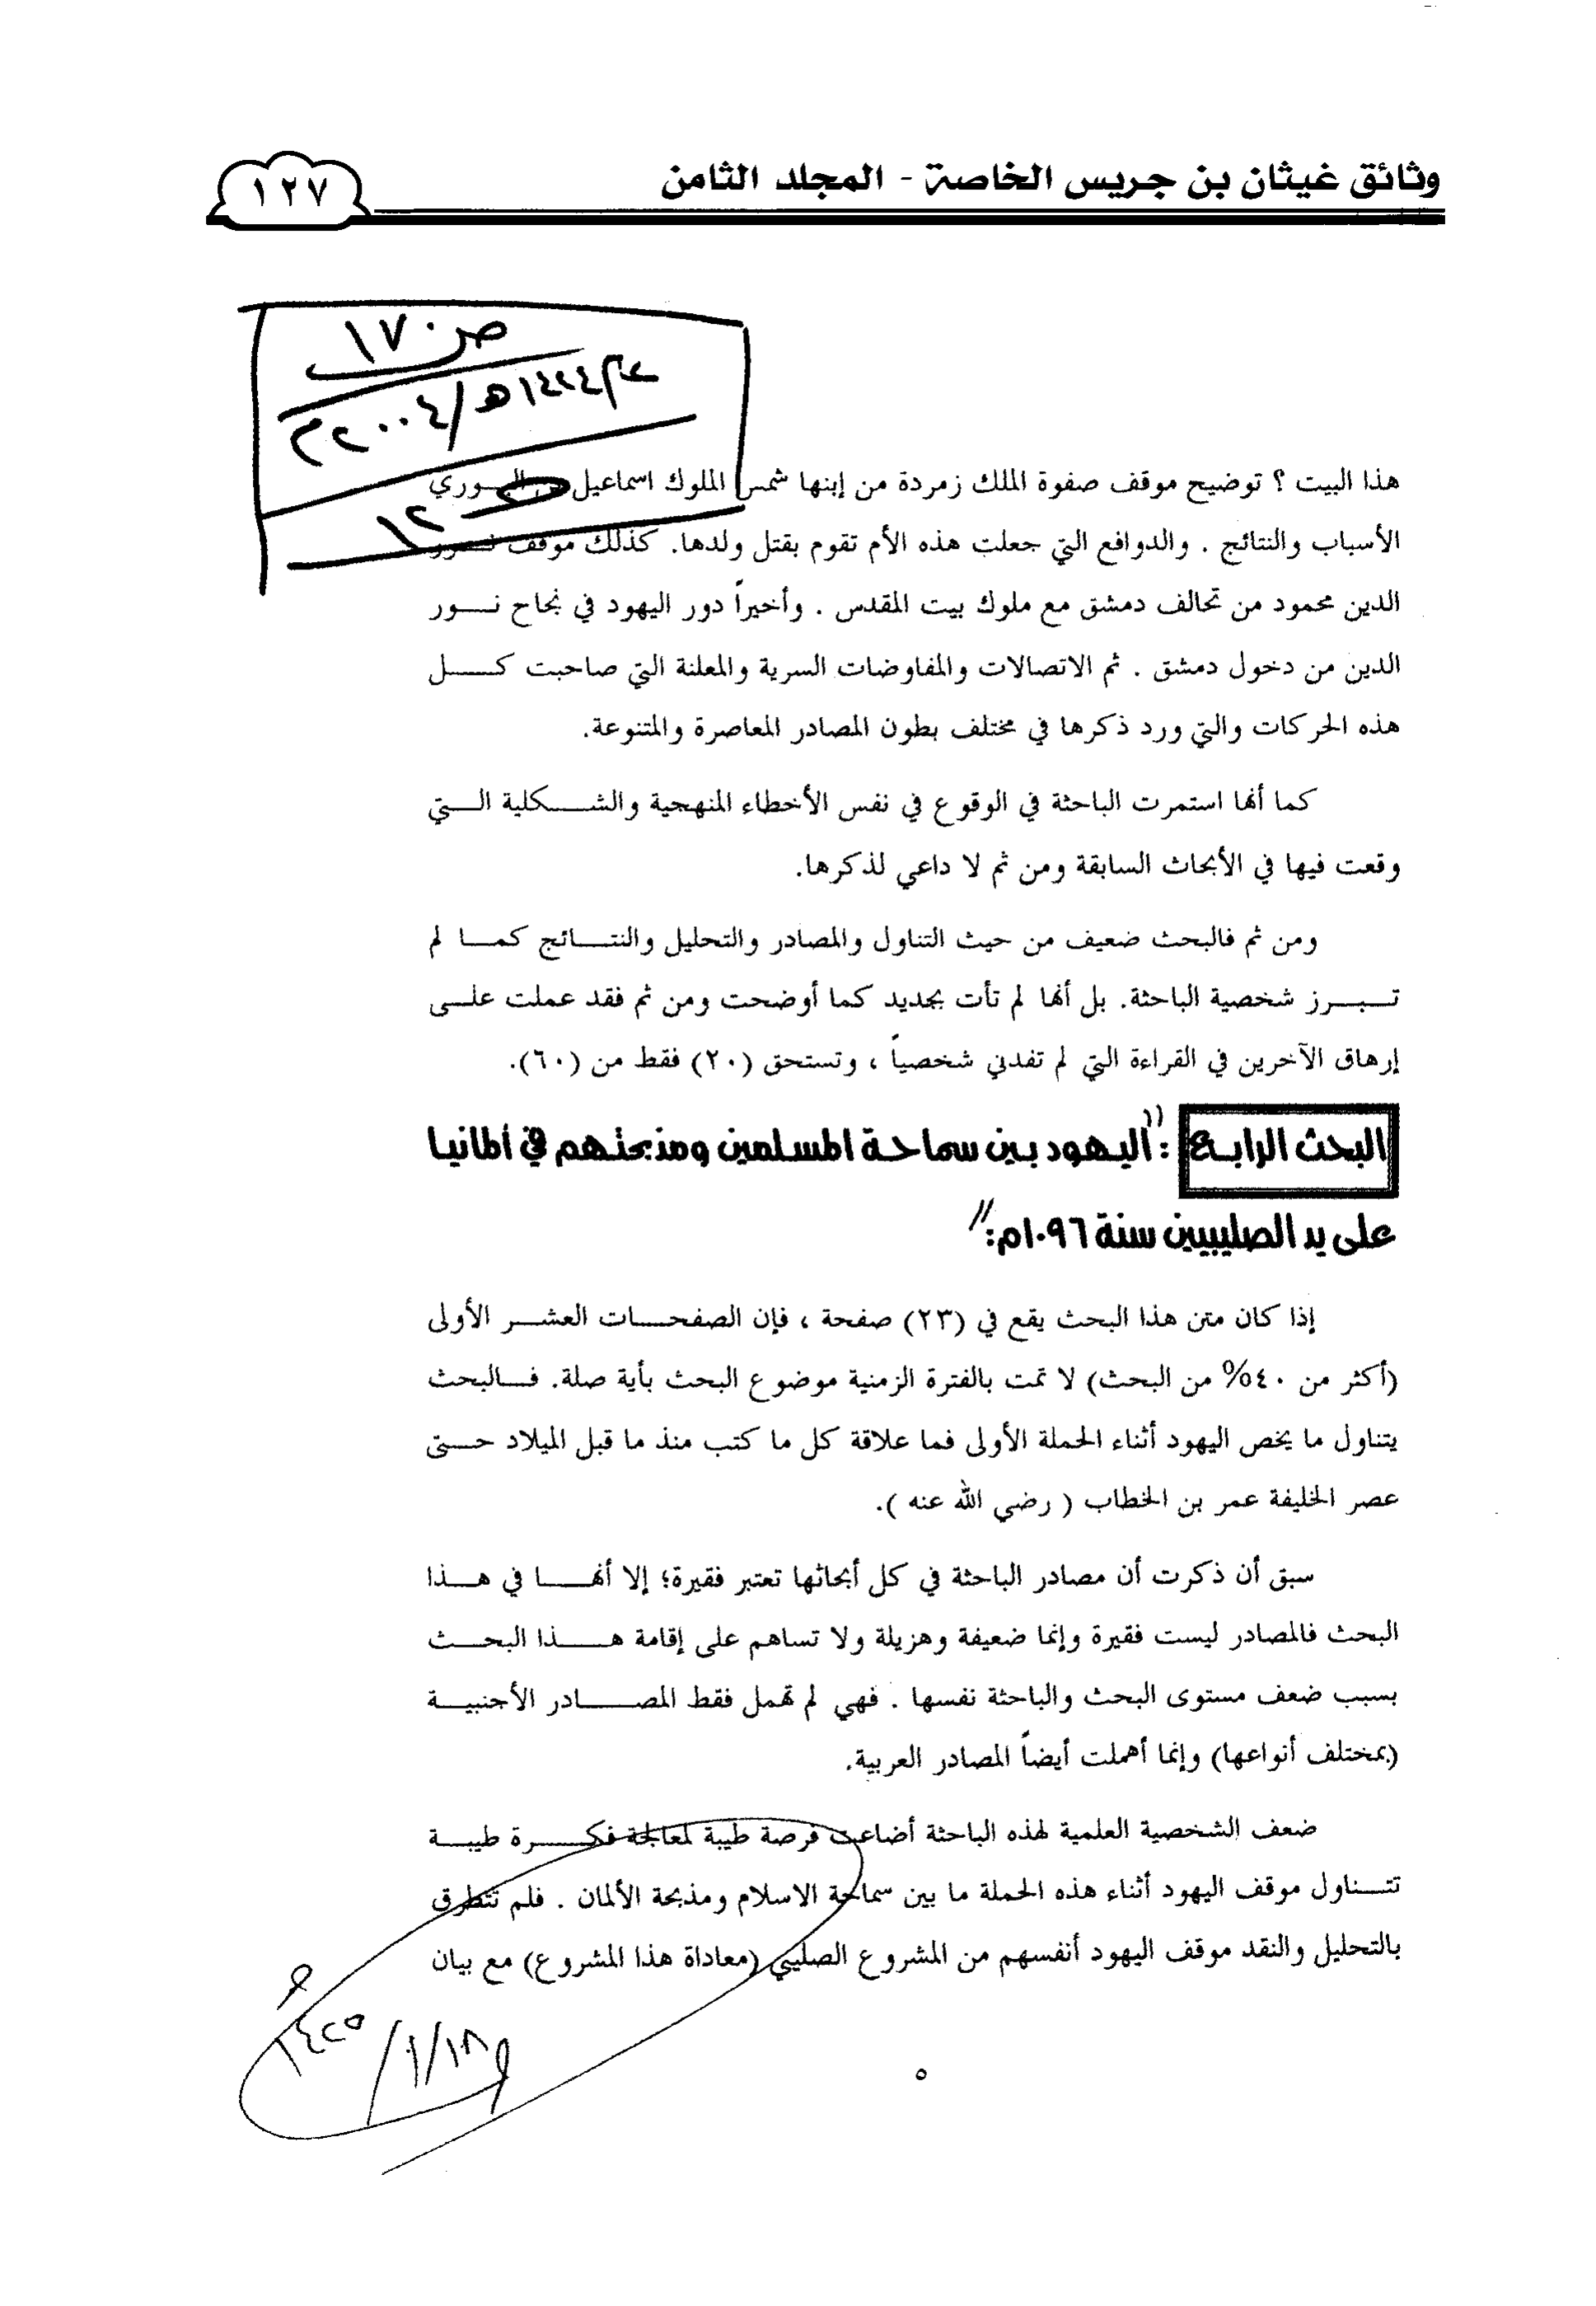 وثائق غيثان بن جريس الخاصة - المجلد الثامن
١٢٧
ص ١٧٠
عام ١٤٢٤هـ/٢٠٠٤م
١٢
هذا البيت ؟ توضيح موقف صفوة الملك زمردة من إبنها شمس الملوك اسماعيل بن البوري
الأسباب والنتائج . والدوافع التي جعلت هذه الأم تقوم بقتل ولدها. كذلك موقف نور
الدين محمود من تحالف دمشق مع ملوك بيت المقدس . وأخيراً دور اليهود في نجاح نور
الدين من دخول دمشق . ثم الاتصالات والمفاوضات السرية والمعلنة التي صاحبت كل
هذه الحركات والتي ورد ذكرها في مختلف بطون المصادر المعاصرة والمتنوعة.
كما أنها استمرت الباحثة في الوقوع في نفس الأخطاء المنهجية والشكلية التي
وقعت فيها في الأبحاث السابقة ومن ثم لا داعي لذكرها.
ومن ثم فالبحث ضعيف من حيث التناول والمصادر والتحليل والنتائج كما لم
تبرز شخصية الباحثة. بل أنها لم تأت بجديد كما أوضحت ومن ثم فقد عملت على
إرهاق الآخرين في القراءة التي لم تفدني شخصياً ، وتستحق (٢٠) فقط من (٦٠).
البحث الرابع : "اليهود بين سماحة المسلمين ومذبحتهم في ألمانيا
على يد الصليبيين سنة ١٠٩٦م:"
إذا كان متن هذا البحث يقع في (٢٣) صفحة ، فإن الصفحات العشر الأولى
(أكثر من ٤٠% من البحث) لا تمت بالفترة الزمنية موضوع البحث بأية صلة. فالبحث
يتناول ما يخص اليهود أثناء الحملة الأولى فما علاقة كل ما كتب منذ ما قبل الميلاد حتى
عصر الخليفة عمر بن الخطاب ( رضي الله عنه ).
سبق أن ذكرت أن مصادر الباحثة في كل أبحاثها تعتبر فقيرة؛ إلا أنها في هذا
البحث فالمصادر ليست فقيرة وإنما ضعيفة وهزيلة ولا تساهم على إقامة هذا البحث
بسبب ضعف مستوى البحث والباحثة نفسها . فهي لم تهمل فقط المصادر الأجنبية
(بمختلف أنواعها) وإنما أهملت أيضاً المصادر العربية.
ضعف الشخصية العلمية لهذه الباحثة أضاعت فرصة طيبة لمعالجة فكرة طيبة
تتناول موقف اليهود أثناء هذه الحملة ما بين سماحة الاسلام ومذبحة الألمان . فلم تتطرق
بالتحليل والنقد موقف اليهود أنفسهم من المشروع الصليبي (معاداة هذا المشروع) مع بيان
١٨/١/١٤٢٥
٥